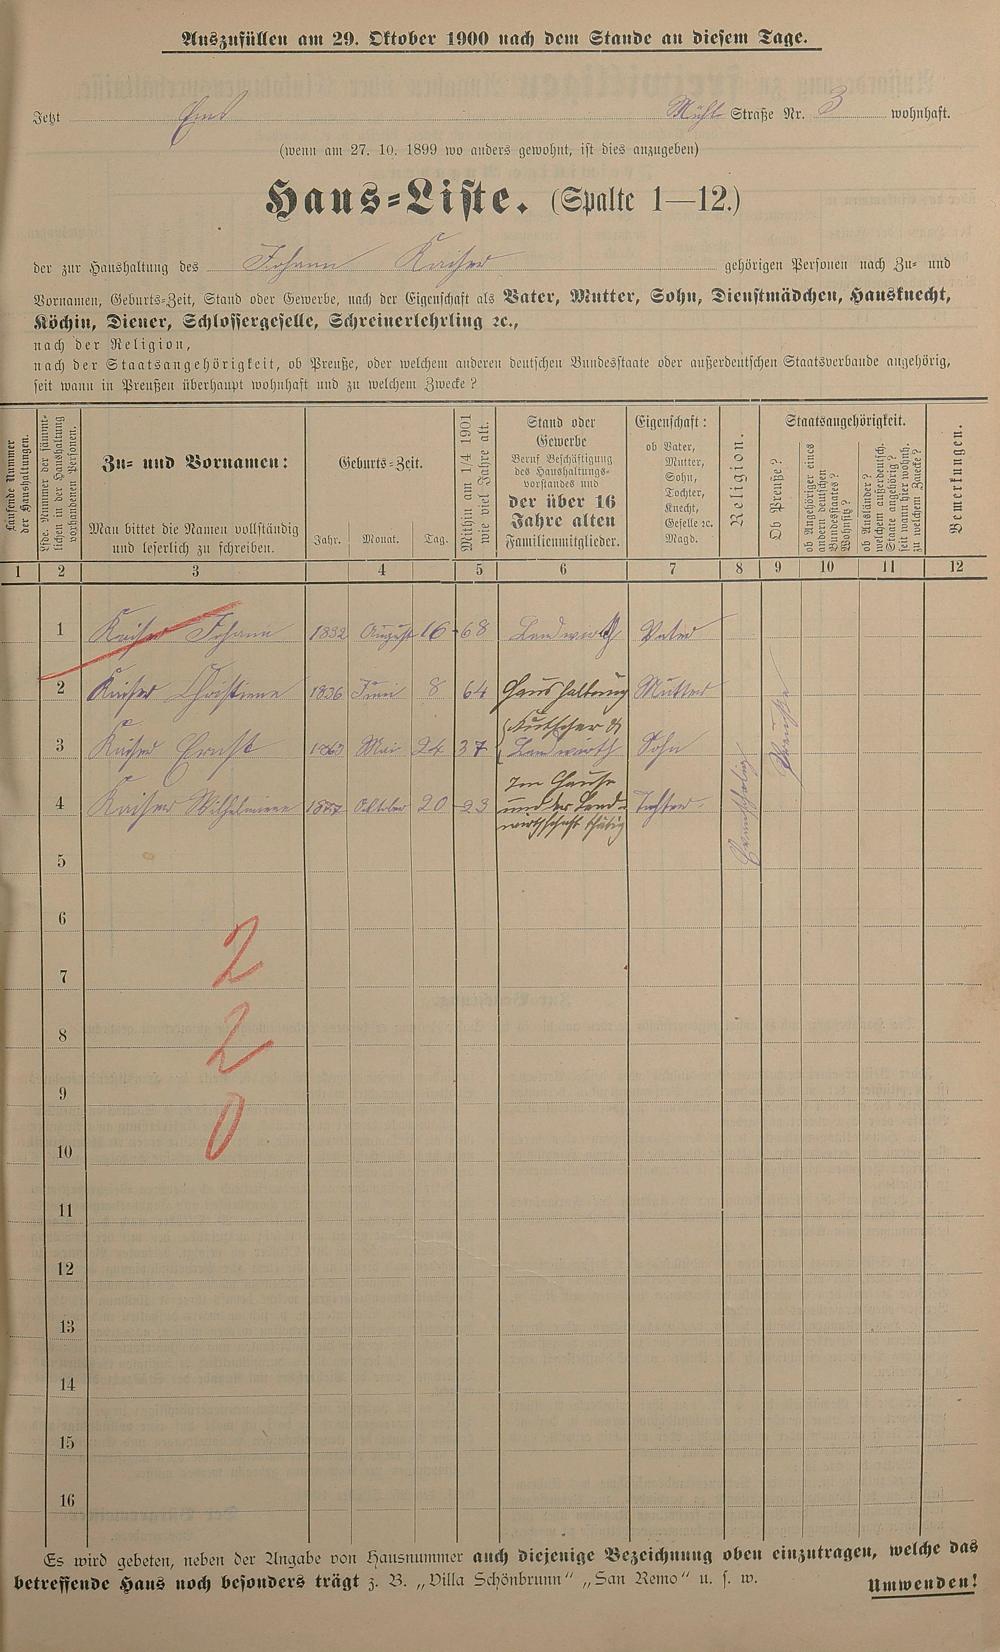 Auszufüllen am 29. Oktober 1900 nach dem Stande an diesem Tage.
Jetzt Ems Mühl Straße Nr. 3 wohnhaft.
(wenn am 27. 10. 1899 wo anders gewohnt, ist dies anzugeben)
Haus=Liste. (Spalte 1—12.)
der zur Haushaltung des Johann Kaiser gehörigen Personen nach Zu= und
Vornamen, Geburts=Zeit, Stand oder Gewerbe, nach der Eigenschaft als Vater, Mutter, Sohn, Dienstmädchen, Hausknecht,
Köchin, Diener, Schlossergeselle, Schreinerlehrling ꝛc.,
nach der Religion,
nach der Staatsangehörigkeit, ob Preuße, oder welchem anderen deutschen Bundesstaate oder außerdeutschen Staatsverbande angehörig,
seit wann in Preußen überhaupt wohnhaft und zu welchem Zwecke?
Laufende Nummer der Haushaltungen.
Lfde. Nummer der sämmtlichen in der Haushaltung vorhandenen Personen.
Zu= und Vornamen:
Man bittet die Namen vollständig
und leserlich zu schreiben.
Geburts=Zeit.
Jahr. Monat. Tag.
Mithin am 1/4 1901 wie viel Jahre alt.
Stand oder
Gewerbe
Beruf Beschäftigung
des Haushaltungs-
vorstandes und
der über 16
Jahre alten
Familienmitglieder.
Eigenschaft:
ob Vater,
Mutter,
Sohn,
Tochter,
Knecht,
Geselle ꝛc.
Magd.
Religion.
Staatsangehörigkeit.
Ob Preuße?
ob Angehöriger eines andern deutschen Bundesstaates? Wohnsitz?
ob Ausländer? welchem außerdeutsch. Staate angehörig? seit wann hier wohnh. zu welchem Zwecke?
Bemerkungen.
1 2 3 4 5 6 7 8 9 10 11 12
1 Kaiser Johann 1832 August 16 68 Landwirth Vater
2 Kaiser Christiene 1836 Juni 8 64 Haushaltung Mutter
3 Kaiser Ernst 1863 Mai 24 37 Kutscher & Landwirth Sohn
4 Kaiser Wilhelmiene 1877 Oktober 20 23 Im Hause und der Landwirthschaft thätig Tochter
Evangelisch
Preuße
5
6
7
8
9
10
11
12
13
14
15
16
2
2
0
Es wird gebeten, neben der Angabe von Hausnummer auch diejenige Bezeichnung oben einzutragen, welche das
betreffende Haus noch besonders trägt z. B. „Villa Schönbrunn“ „San Remo“ u. s. w.
Umwenden!